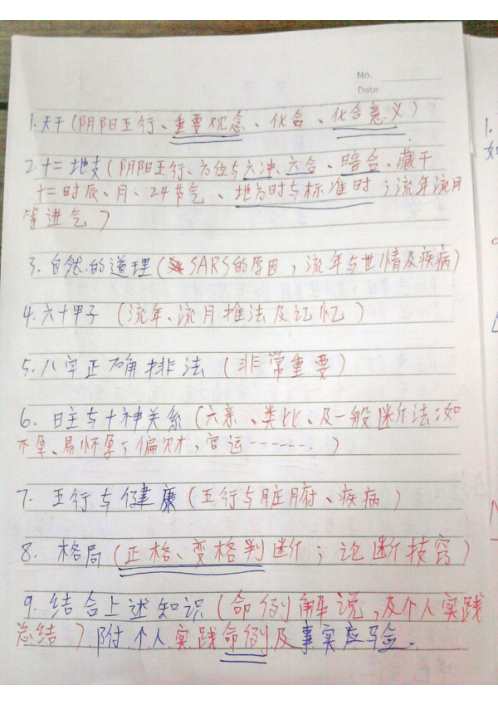 No.
Date
1.天干(阴阳五行、重要观念、化合、化合意义)
2.十二地支(阴阳五行、方位与六冲、六合、暗合、藏干
十二时辰、月、24节气、地方时与标准时;流年流月
等进气)
3.自然的道理(SARS的原因,流年与世情及疾病)
4.六十甲子(流年、流月推法及记忆)
5.八字正确排法(非常重要)
6.日主与十神关系(六亲、类比、及一般断法:如
不孕、易怀孕、偏财,官运------.)
7.五行与健康(五行与脏腑、疾病)
8.格局(正格、变格判断;论断技窍)
9.结合上述知识(命例解说,及个人实践
总结)附个人实践命例及事实应验.
1.